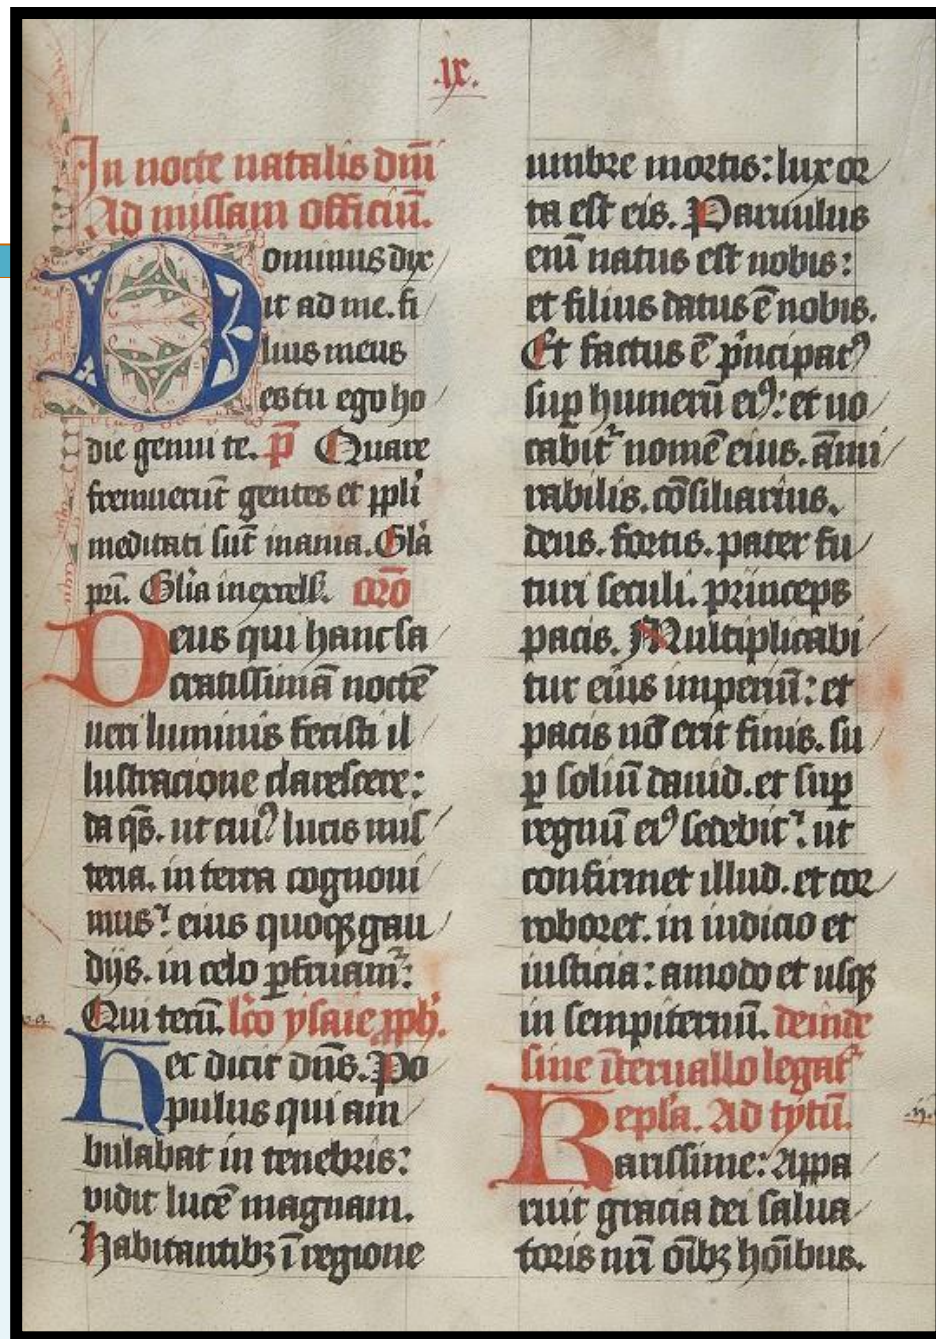 .ix.
In nocte natalis dm̄i
Ad missam officiū.
Dominus dix
it ad me. fi
lius meus
es tu ego ho
die genui te. p̄ Quare
fremuerūt gentes et ppl̄i
meditati sūt inania. Gl̄a
pr̄i. Gl̄ia in excels̄. or̄o
Deus qui hanc sa
cratissimā noctē
ueri luminis fecisti il
lustracione clarescere:
da qs̄. ut cuiꝰ lucis mis
teria. in terra cognoui
mus: eius quoqꝫ gau
dijs. in celo ꝑfruam᷑:
Qui tecū. lc̄o ysaie ꝓph̄.
Hec dicit dn̄s. Po
pulus qui am
bulabat in tenebris:
vidit lucē magnam.
Habitantibꝫ ī regione
umbre mortis: lux or
ta est eis. Paruulus
enī natus est nobis:
et filius datus ē nobis.
Et factus ē p̄ncipatꝰ
suꝑ humerū eiꝰ: et uo
cabit᷑ nomē eius. am̄i
rabilis. cōsiliarius.
deus. fortis. pater fu
turi seculi. princeps
pacis. Multiplicabi
tur eius imperiū: et
pacis nō erit finis. su
ꝑ soliū dauid. et suꝑ
regnū eiꝰ sedebit᷑: ut
confirmet illud. et cor
roboret. in iudicio et
iusticia: amodo et usqꝫ
in sempiternū. deinde
sine īteruallo legat᷑
epl̄a. Ad tytū.
Karissime: Appa
ruit gracia dei salua
toris nr̄i oībꝫ hōibus.
.ij.